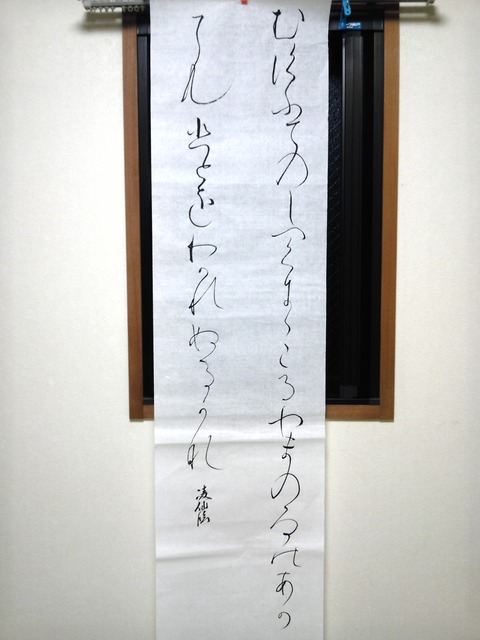 むすふてのしつくにゝこるやまのゐのあか
てもひとにわかれぬるかな